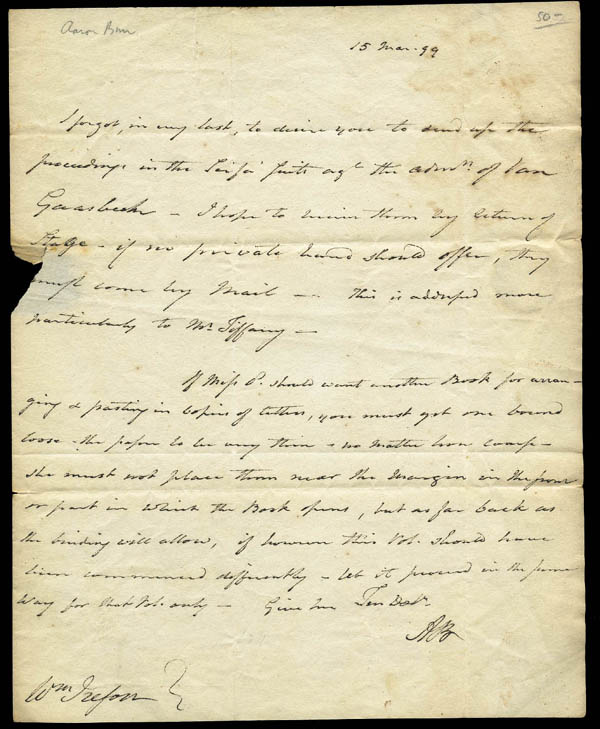 Aaron Burr
50-
15 Mar. 99
I forgot, in my last, to desire you to send up the
proceedings in the Sci fa Suits agt the admrs. of Van
Gaasbeek - I hope to receive them by return of
Stage - if no private hand should offer, they
must come by Mail - This is addressed more
particularly to Mr Tiffany -
If Miss P. should want another Book for arran-
ging & pasting in copies of letters, you must get one bound
loose - the paper to be very thin - no matter how
she must not place them near the margin in the
or part in which the Book opens, but as far back as
the binding will allow, if however this Vol. should have
been commenced differently - let it proceed in the same
way for that Vol. only - Give her Ten Dolls.
AB
Wm Ireson